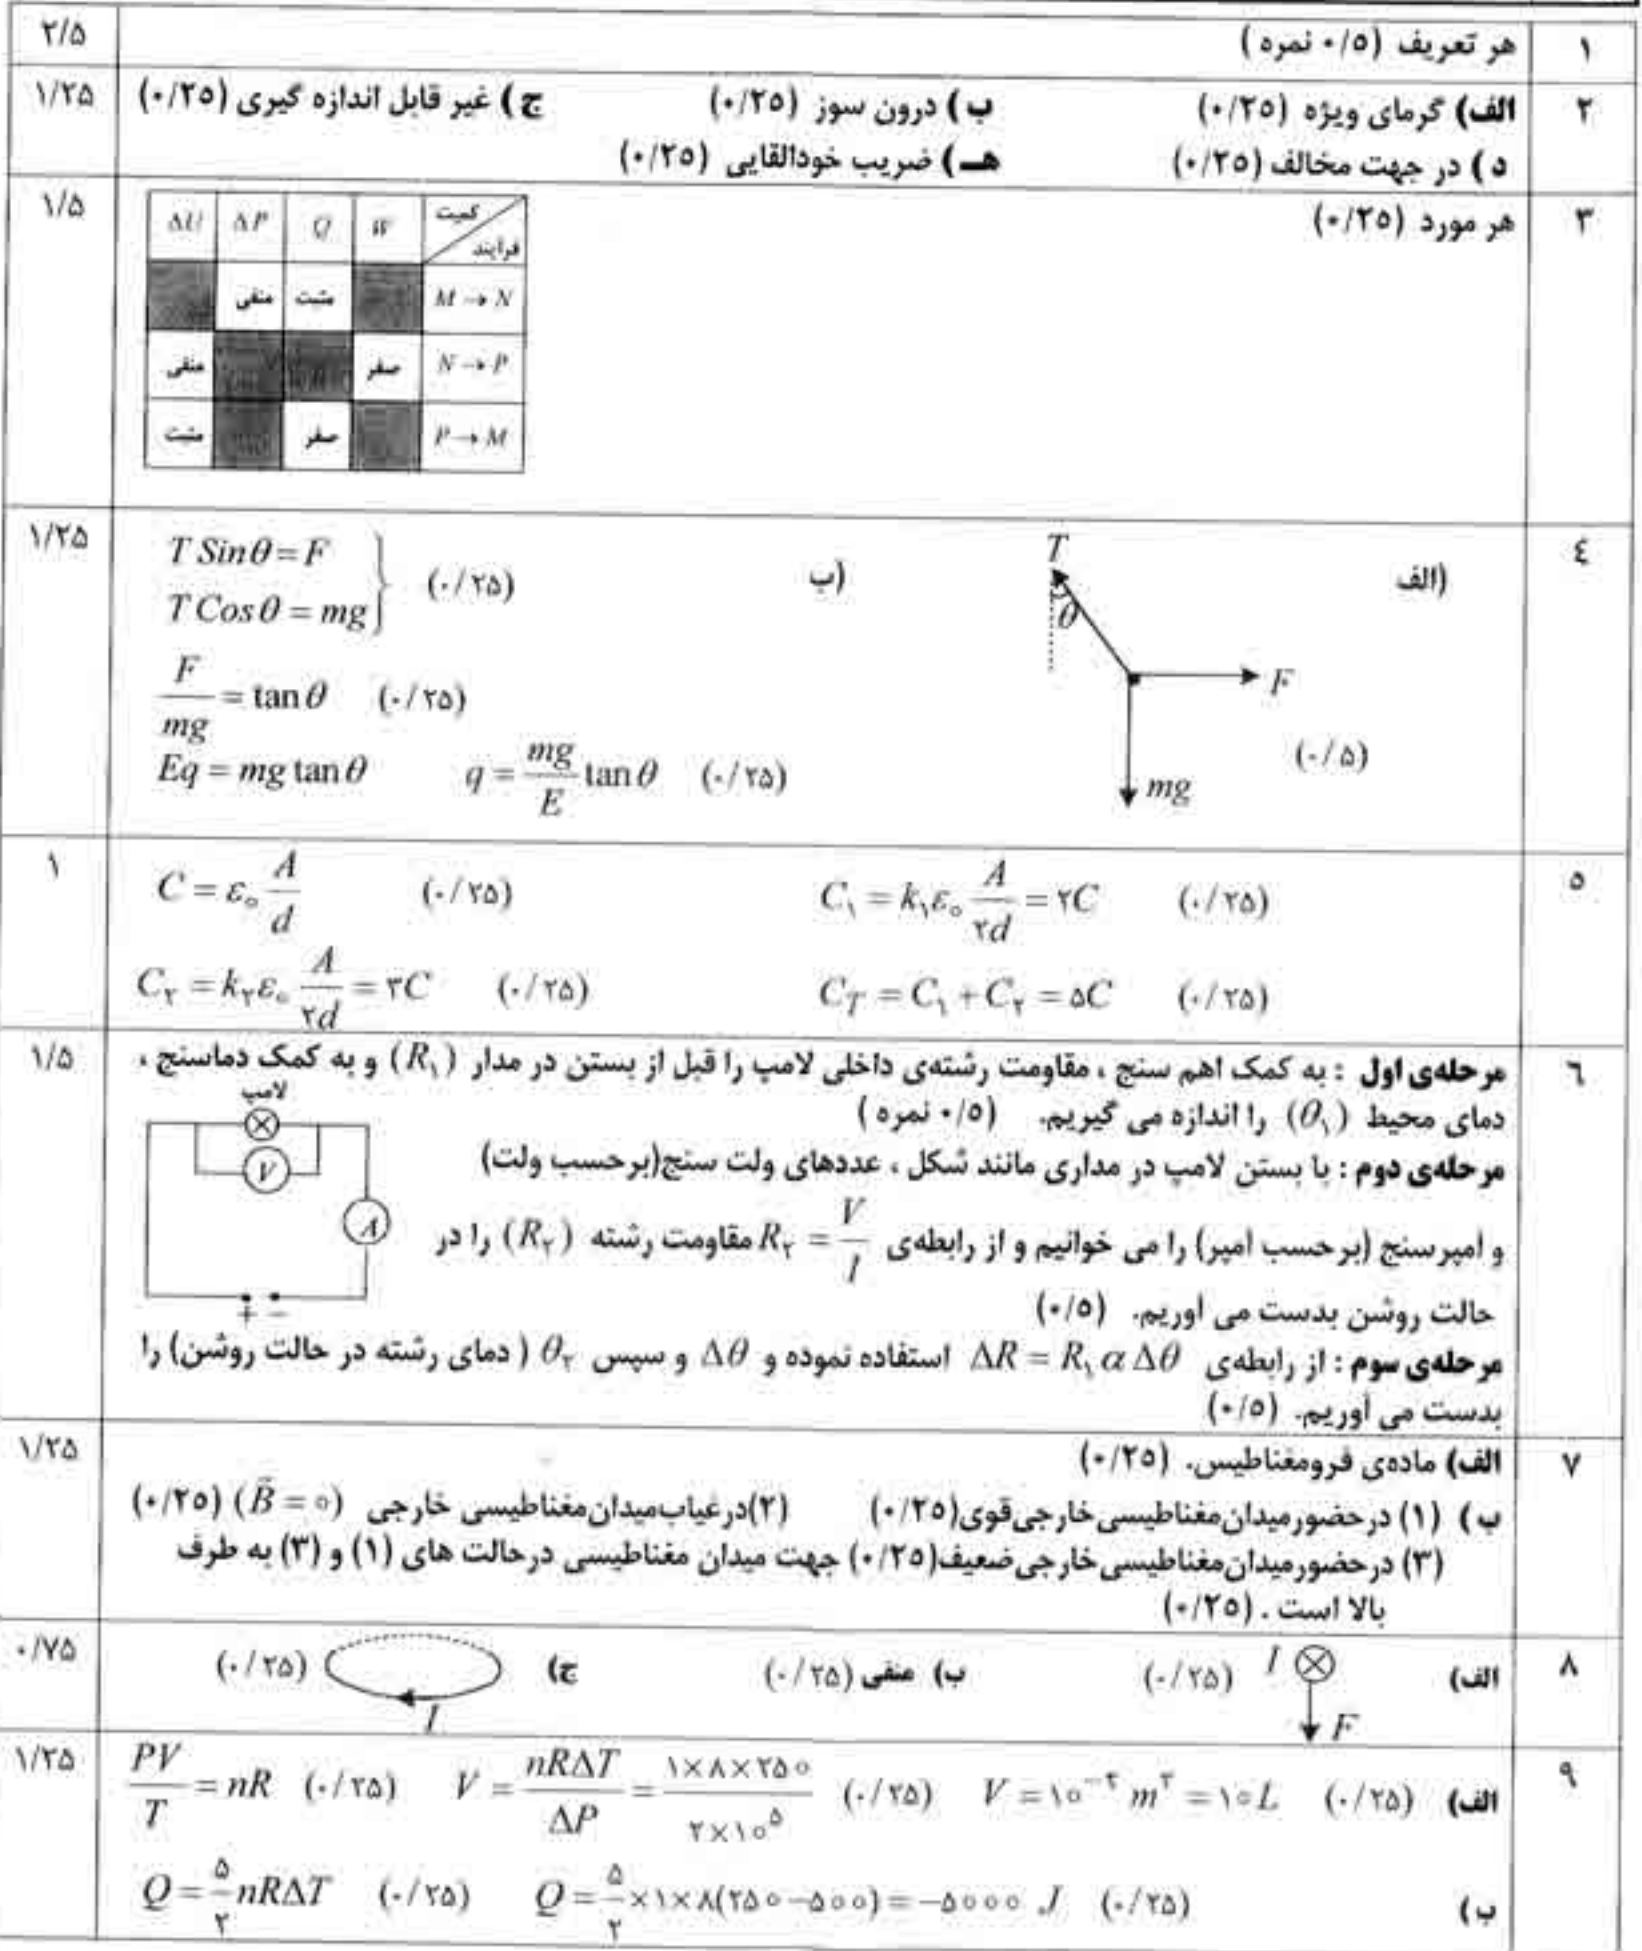 ۱ هر تعریف (۰/۵ نمره) ۲/۵
۲ الف) گرمای ویژه (۰/۲۵) ب) درون سوز (۰/۲۵) ج) غیر قابل اندازه گیری (۰/۲۵) ۱/۲۵
د) در جهت مخالف (۰/۲۵) هـ) ضریب خودالقایی (۰/۲۵)
۳ هر مورد (۰/۲۵) ۱/۵
کمیت فرآیند W Q ΔP ΔU
M → N مثبت منفی
N → P صفر منفی
P → M صفر مثبت
۴ الف) T θ F mg (۰/۵) ۱/۲۵
ب) T Sinθ = F
T Cosθ = mg } (۰/۲۵)
F/mg = tanθ (۰/۲۵)
Eq = mg tanθ q = mg/E tanθ (۰/۲۵)
۵ C = ε۰ A/d (۰/۲۵) C۱ = k۱ε۰ A/۲d = ۲C (۰/۲۵) ۱
C۲ = k۲ε۰ A/۲d = ۳C (۰/۲۵) CT = C۱ + C۲ = ۵C (۰/۲۵)
۶ مرحله‌ی اول : به کمک اهم سنج ، مقاومت رشته‌ی داخلی لامپ را قبل از بستن در مدار (R۱) و به کمک دماسنج ، ۱/۵
دمای محیط (θ۱) را اندازه می گیریم. (۰/۵ نمره)
مرحله‌ی دوم : با بستن لامپ در مداری مانند شکل ، عددهای ولت سنج(برحسب ولت)
و آمپرسنج (برحسب آمپر) را می خوانیم و از رابطه‌ی R۲ = V/I مقاومت رشته (R۲) را در
حالت روشن بدست می آوریم. (۰/۵)
لامپ
V
A
+ −
مرحله‌ی سوم : از رابطه‌ی ΔR = R۱ α Δθ استفاده نموده و Δθ و سپس θ۲ ( دمای رشته در حالت روشن) را
بدست می آوریم. (۰/۵)
۷ الف) ماده‌ی فرومغناطیس. (۰/۲۵) ۱/۲۵
ب) (۱) درحضورمیدان‌مغناطیسی‌خارجی‌قوی(۰/۲۵) (۲)درغیاب‌میدان‌مغناطیسی خارجی (B⃗ = ۰) (۰/۲۵)
(۳) درحضورمیدان‌مغناطیسی‌خارجی‌ضعیف(۰/۲۵) جهت میدان مغناطیسی درحالت های (۱) و (۳) به طرف
بالا است . (۰/۲۵)
۸ الف) I ⊗ F (۰/۲۵) ب) منفی (۰/۲۵) ج) I (۰/۲۵) ۰/۷۵
۹ الف) PV/T = nR (۰/۲۵) V = nRΔT/ΔP = ۱×۸×۲۵۰/۲×۱۰^۵ (۰/۲۵) V = ۱۰^−۲ m^۳ = ۱۰L (۰/۲۵) ۱/۲۵
ب) Q = ۵/۲ nRΔT (۰/۲۵) Q = ۵/۲ ×۱×۸(۲۵۰−۵۰۰) = −۵۰۰۰ J (۰/۲۵)